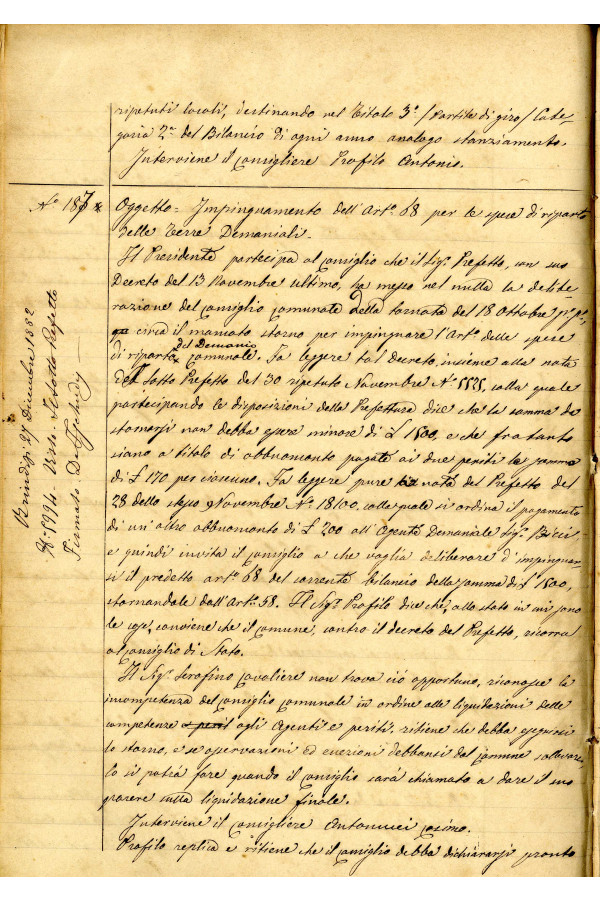 ripetuti locali, destinando nel Titolo 3° / Partite di giro / Cate-
goria 2ª del Bilancio di ogni anno analogo stanziamento.
Interviene il Consigliere Profilo Antonio.
N° 187
Oggetto = Impinguamento dell'Art° 68 per le spese di riparto
delle Terre Demaniali.
Il Presidente partecipa al Consiglio che il Sig. Prefetto, con suo
Decreto del 13 Novembre ultimo, ha messo nel nulla la delibe-
razione del Consiglio Comunale della tornata del 18 Ottobre p°p°,
circa il mancato storno per impinguare l'Art° delle spese
di riparto del Demanio Comunale. Fa leggere tal Decreto, insieme alla nota
del Sotto Prefetto del 30 ripetuto Novembre N° 5525, colla quale
partecipando le disposizioni della Prefettura dice che la somma da
stornarsi non debba essere minore di £ 1500, e che frattanto
siano a titolo di abbuonamento pagate ai due periti le somme
di £ 170 per ciascuno. Fa leggere pure nota del Prefetto del
28 dello stesso Novembre N° 18100, colla quale si ordina il pagamento
di un'altro abbuonamento di £ 200 all'Agente Demaniale Sig.
e quindi invita il Consiglio a che voglia deliberare d'impinguar-
si il predetto art° 68 del corrente bilancio della somma di £ 1500,
stornandole dall'Art° 58. Il Sig. Profilo dice che, allo stato in cui sono
le cose, conviene che il Comune, contro il decreto del Prefetto, ricorra
al Consiglio di Stato.
Il Sig. Serafino Cavaliere non trova ciò opportuno, riconosce la
incompetenza del Consiglio Comunale in ordine alle liquidazioni delle
competenze agli Agenti e periti, ritiene che debba eseguirsi
lo storno, e se osservazioni ed eccezioni debbansi dal Comune sollevare,
lo si potrà fare quando il Consiglio sarà chiamato a dare il suo
parere sulla liquidazione finale.
Interviene il Consigliere Antonucci Cosimo.
Profilo replica e ritiene che il Consiglio debba dichiararsi pronto
Brindisi 27 Dicembre 1882
N° 5994 - Visto - Il Sotto Prefetto
Firmato